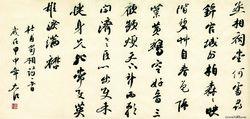 丞相祠堂何處尋
錦官城外柏森森
映階碧草自春色隔
葉黃鸝空好音三
顧頻煩天下計兩朝
開濟老臣心出師未
捷身先死長使英
雄淚滿襟
杜甫蜀相詩一首